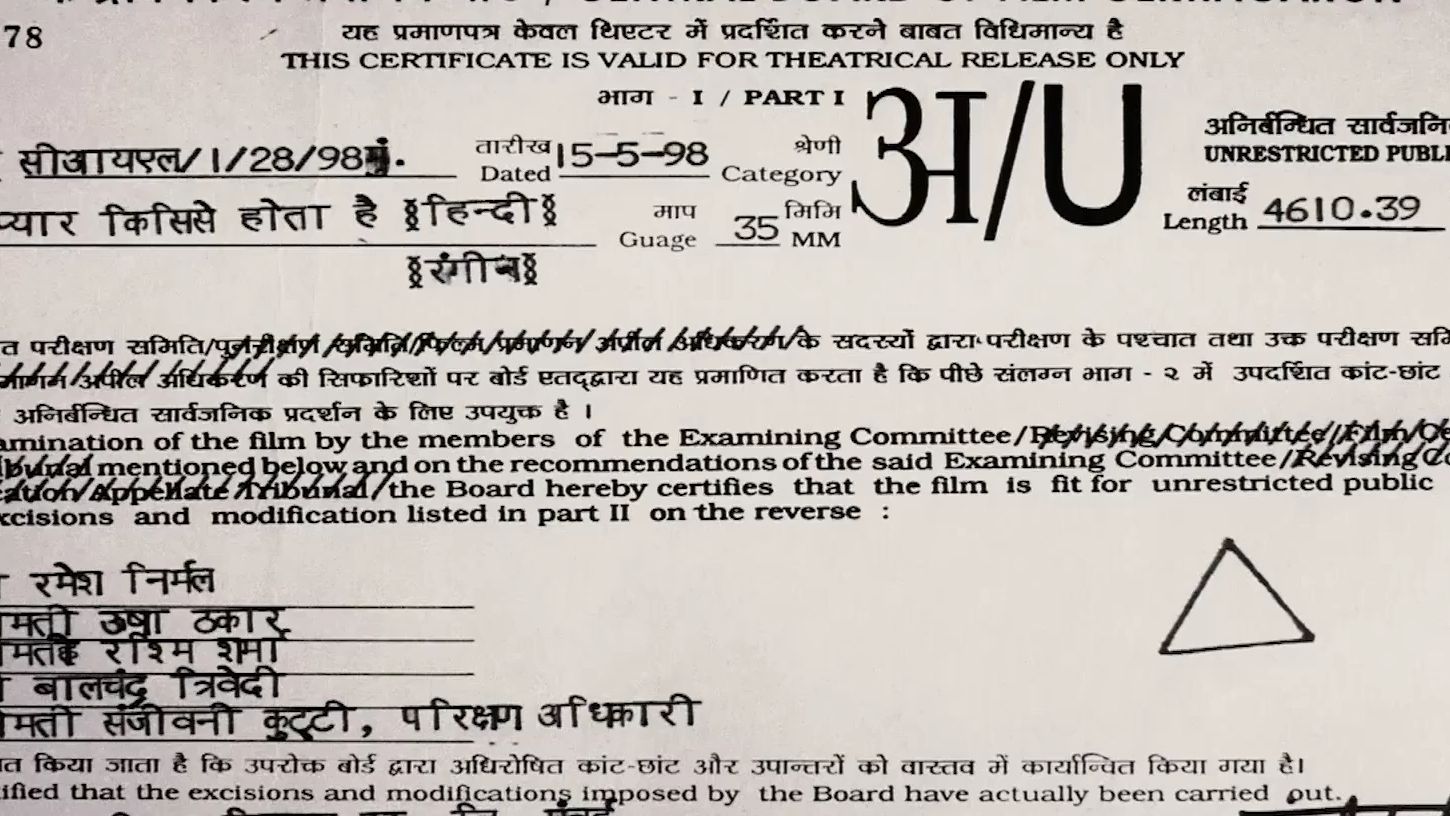 CENTRAL BOARD OF FILM CERTIFICATION
78
यह प्रमाणपत्र केवल थिएटर में प्रदर्शित करने बाबत विधिमान्य है
THIS CERTIFICATE IS VALID FOR THEATRICAL RELEASE ONLY
भाग - I / PART I
अ/U
अनिर्बन्धित सार्वजनि
UNRESTRICTED PUBLI
सीआयएल/1/28/98
तारीख 15-5-98 श्रेणी
Dated Category
लंबाई
Length 4610.39
प्यार किसिसे होता है (हिन्दी)
माप 35 मिमि
Guage MM
(रंगीन)
त परीक्षण समिति/पुनरीक्षण समिति/फिल्म प्रमाणन अपील अधिकरण/के सदस्यों द्वारा परीक्षण के पश्चात तथा उक्त परीक्षण समि
माणन अपील अधिकरण की सिफारिशों पर बोर्ड एतद्द्वारा यह प्रमाणित करता है कि पीछे संलग्न भाग - २ में उपदर्शित कांट-छांट
अनिर्बन्धित सार्वजनिक प्रदर्शन के लिए उपयुक्त है ।
amination of the film by the members of the Examining Committee/Revising Committee/Film Ce
ibunal mentioned below and on the recommendations of the said Examining Committee/Revising Co
cation/Appellate Tribunal/the Board hereby certifies that the film is fit for unrestricted public
xcisions and modification listed in part II on the reverse :
रमेश निर्मल
मती उषा ठकार
रश्मि शर्मा
बालचंद्र त्रिवेदी
मती संजीवनी कुट्टी, परिक्षण अधिकारी
त किया जाता है कि उपरोक्त बोर्ड द्वारा अधिरोपित कांट-छांट और उपान्तरों को वास्तव में कार्यान्वित किया गया है।
ified that the excisions and modifications imposed by the Board have actually been carried out.